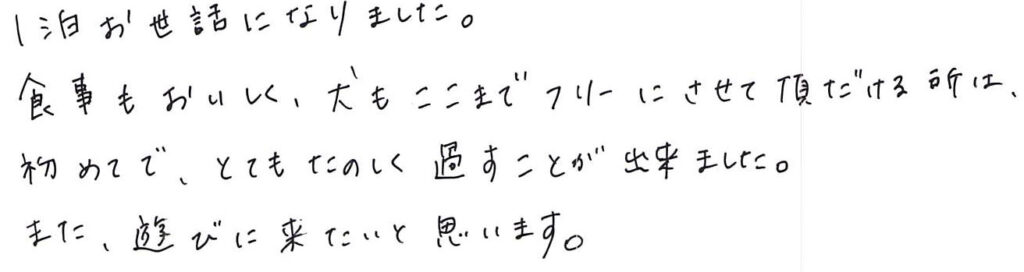 1泊お世話になりました。
食事もおいしく、犬もここまでフリーにさせて頂だける所は、
初めてで、とてもたのしく過すことが出来ました。
また、遊びに来たいと思います。